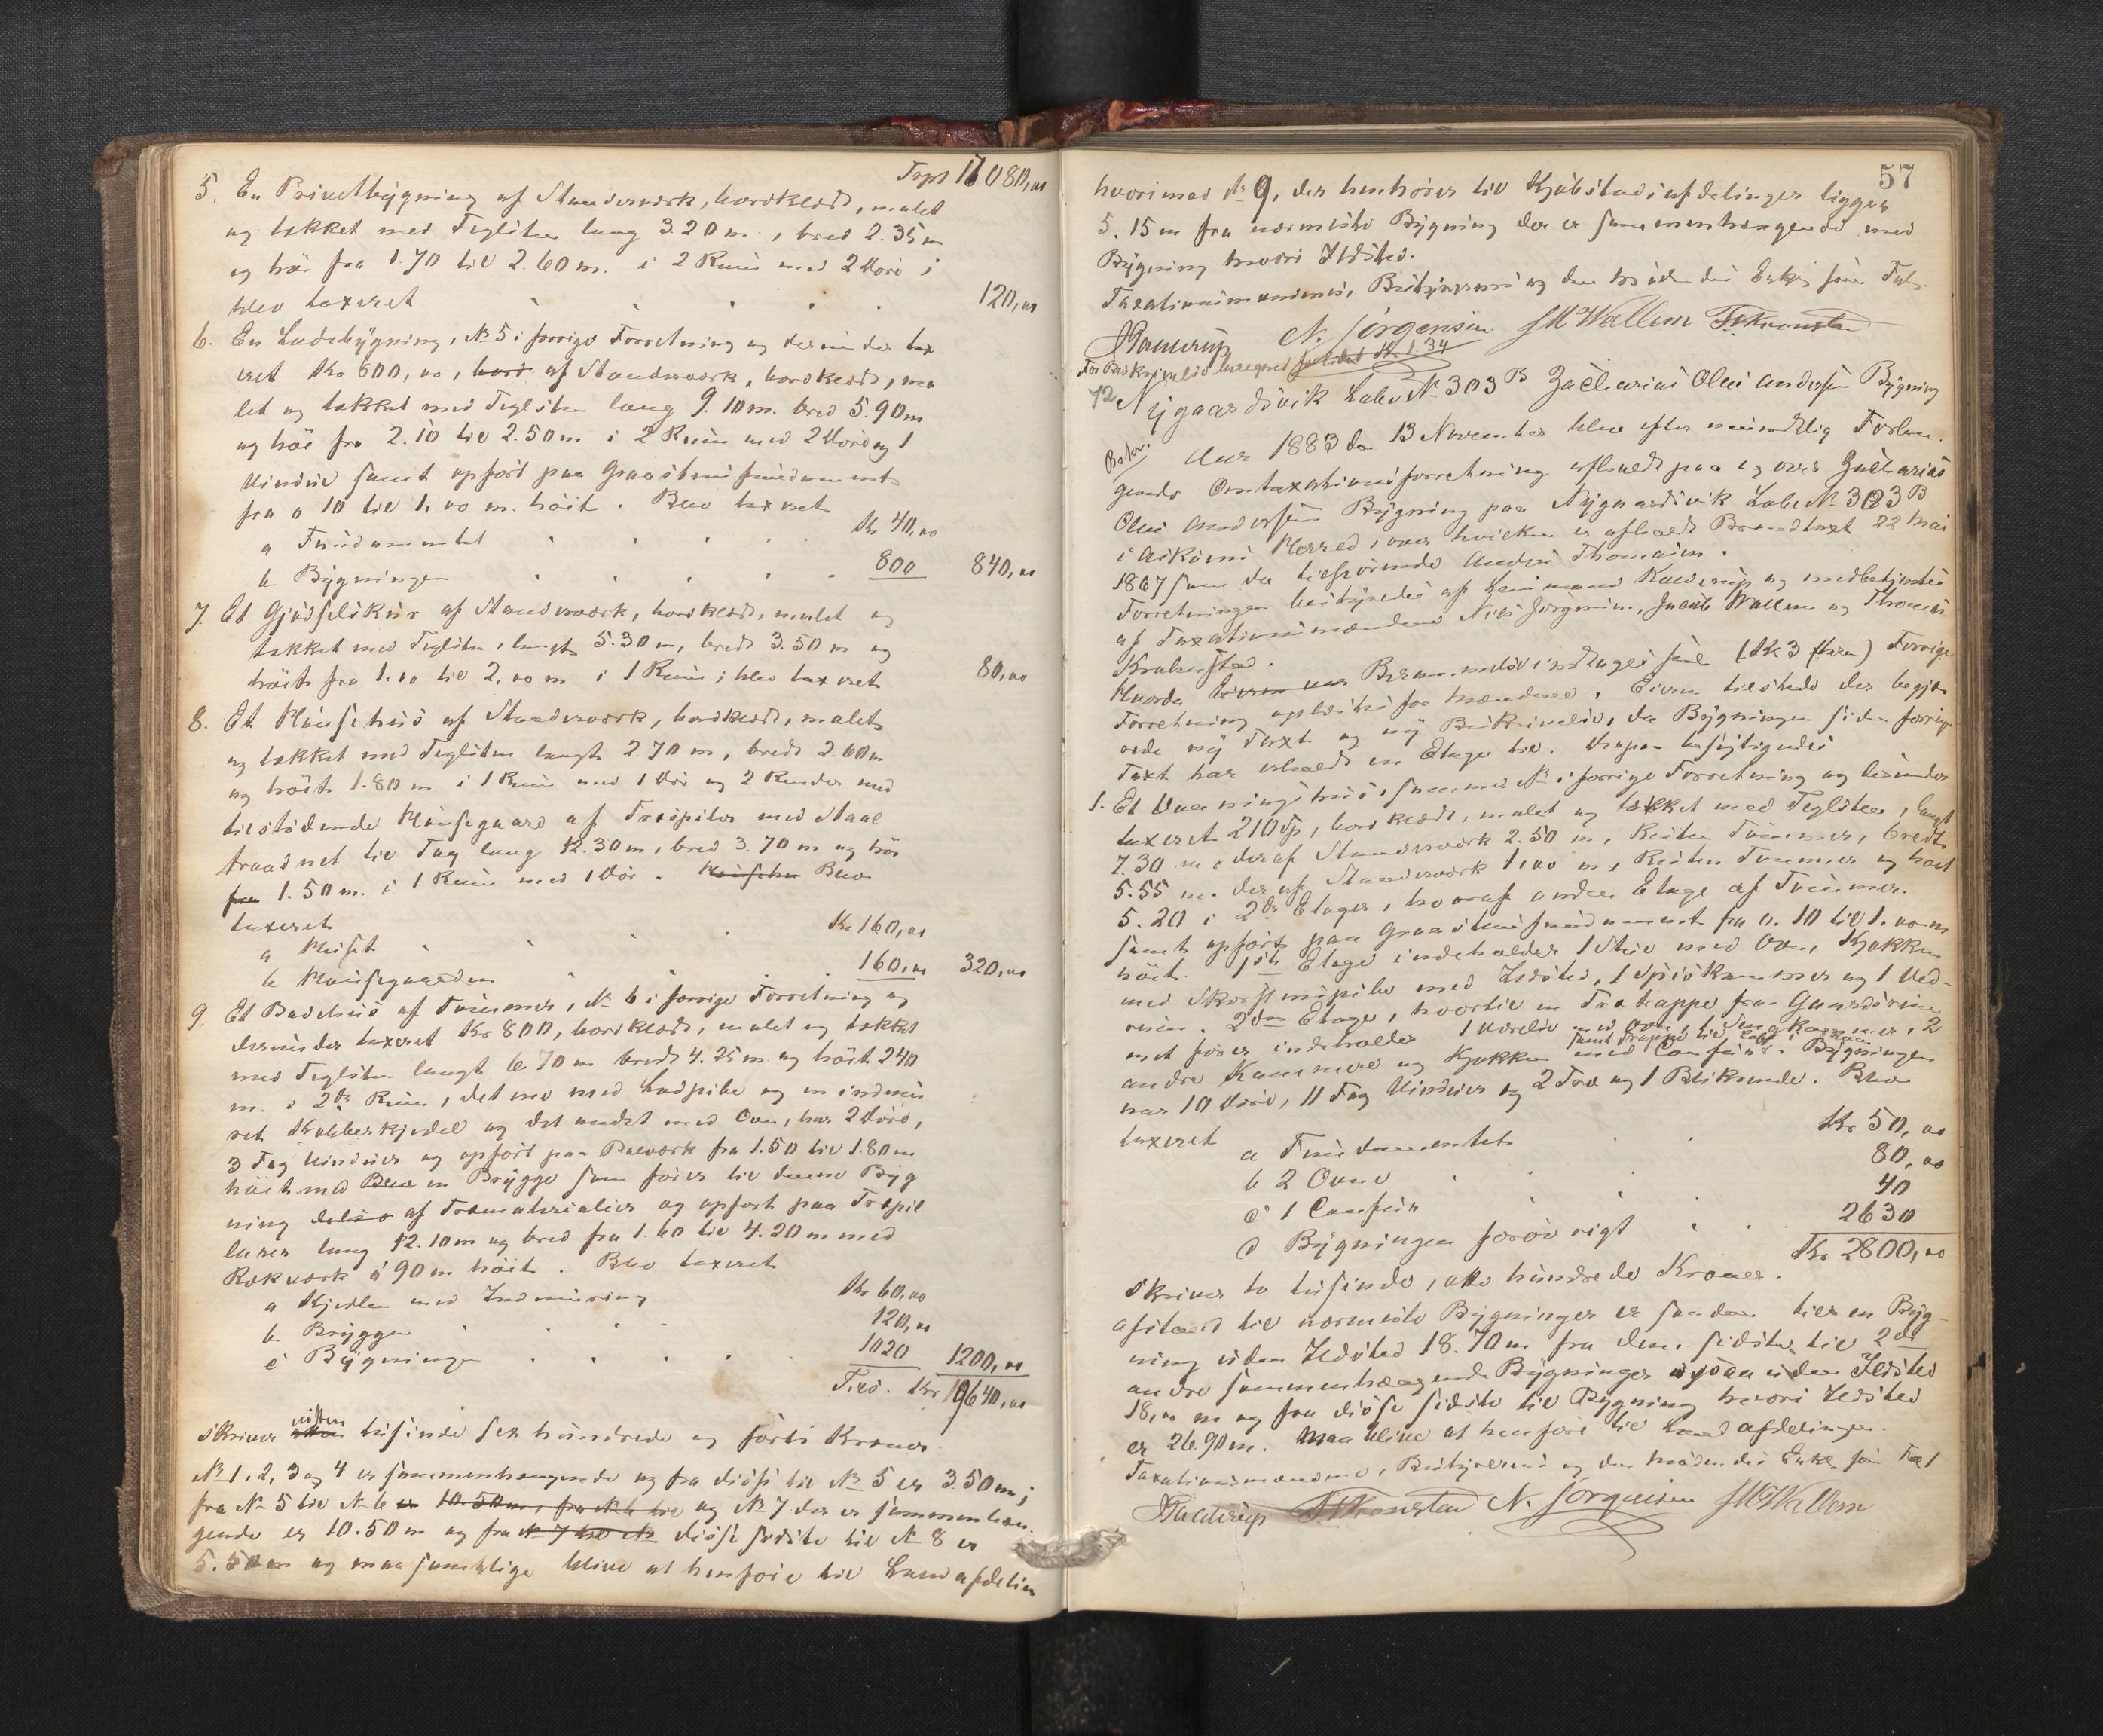 Trpt 17080,00
5. En Privetbygning af Standværk, bordklædt, malet
og tækket med Teglsten lang 3.20 m., bred 2.35 m
og høi fra 1.70 til 2.60 m. i 2 Rum med 2 Døre;
blev taxeret 120,00
6. En Ladebygning, № 5 i forrige Forretning og derunder tax
eret Kr 600,00, bord af Standværk, bordklædt, ma
let og tækket med Teglsten lang 9.10 m. bred 5.90 m
og høi fra 2.10 til 2.50 m. i 2 Rum med 2 Døre og 1
Vindue samt opført paa Graastensfundament
fra 0 10 til 1,00 m. høit. Blev taxeret
a Fundamentet Kr 40,00
b Bygningen 800 840,00
7. Et Gjødselskur af Standværk, bordklædt, malet og
tækket med Teglsten, langt 5.30 m, bredt 3.50 m og
høit fra 1.00 til 2,00 m i 1 Rum; blev taxeret 80,00
8. Et Hønsehus af Standværk, bordklædt, malet
og tækket med Teglsten langt 2.70 m, bredt 2.60 m
og høit 1.80 m i 1 Rum med 1 Dør og 2 Ruder med
tilstødende Hønsegaard af Træspiler med Staal
traadnet til Tag lang 12.30 m, bred 3.70 m og høi
fra 1.50 m. i 1 Rum med 1 Dør. Blev
taxeret
a Huset Kr 160,00
b Hønsegaarden 160,00 320,00
9. Et Badehus af Tømmer, № 6 i forrige Forretning og
derunder taxeret Kr 800, bordklædt, malet og tækket
med Teglsten langt 6.70 m bredt 4.25 m og høit 2.40
m. i 2de Rum, det ene med Ladpibe og en indmu
ret Kobberkjedel og det andet med Ovn, har 2 Døre,
3 Fag Vinduer og opført paa Pæleværk fra 1.50 til 1.80 m
høit med Blev en Brygge som fører til denne Byg
ning af Træmaterialier og opført paa Træpil
larer lang 12.10 m og bred fra 1.60 til 4.20 m med
Rækværk 0 90 m høit. Blev taxeret
a Kjedlen med Indmuring Kr 60,00
b Bryggen 120,00
c Bygningen 1020 1200,00
Tils. Kr 19640,00
skriver nitten tusinde sex hundrede og førti Kroner.
№ 1, 2, 3 og 4 er sammenhængende og fra disse til № 5 er 3.50 m;
fra № 5 til № 6 er 10.50 m, fra № 6 til og № 7 der er sammenhæn
gende er 10.50 m og fra № 7 til № disse sidste til № 8 er
5.50 m og maa samtlige blive at henføre til Landafdelin
57
hvorimod № 9, der henhører til Kjøbstadsafdelingen ligger
5.15 m fra nærmeste Bygning der er sammenhængende med
Bygning hvori Ildsted.
Taxationsmændenes, Bestyrerens og den mødendes Enkes som Tal.
N. Jørgensen J M Wallem T. Krohnstad
For Beskrivelse beregnet Kr 1.34
72 Nygaardsvik Labr № 303 B Zacharias Olai Andersen Bygning
Aar 1883 den 13 November blev efter mundtlig Forlan
gende Omtaxationsforretning afholdt paa og over Zacharias
Olai Andersens Bygning paa Nygaardsvik Labr № 303 B
i Askøens Herred, over hvilken er afholdt Brandtaxt 22 Mai
1867 som da tilhørende Anders Thomasen.
Forretningen bestyredes af Lensmand og medbetjentes
af Taxationsmændene Niels Jørgensen, Jacob Wallem og Thomas
Krohnstad.
Forretning oplæstes for Mændene. Eieren tilstede der begjæ
rede ny Taxt og ny Beskrivelse, da Bygningen siden forrige
Taxt har erholdt en Etage til. Derpaa besigtigedes
1. Et Vaaningshus, samme № i forrige Forretning og derunder
taxeret 210 Sp, bordklædt, malet og tækket med Teglsten, langt
7.30 m, deraf Standværk 2.50 m, Resten Tømmer, bredt
5.55 m. deraf Standværk 1,00 m, Resten Tømmer og høit
5.20 i 2de Etager, hvoraf anden Etage af Tømmer.
samt opført paa Graastensfundament fra 0.10 til 1.00 m
høit. 1ste Etage indeholder 1 Stue med Ovn, Kjøkken
med Skorstenspibe med Ildsted, 1 Spiskammer og 1 Ved-
rum. 2den Etage, hvortil en Trætrappe fra Gaardsrum
met fører indeholder 1 Værelse med Ovn, 1 Sengkammer, 2
samt Trappe til Loft i Rum
andre Kammere og Kjøkken med Comfur. Bygningen
har 10 Døre, 11 Fag Vinduer og 2 Træ og 1 Blikrende. Blev
taxeret
a Fundamentet Kr 50,00
b 2 Ovne 80,00
c 1 Comfur 40
d Bygningen forøvrigt 2630
Kr 2800,00
skriver to tusinde, otte hundrede Kroner.
Afstand til nærmeste Bygninger er saadan til en Byg-
ning uden Ildsted 18.70 m fra den sidste til 2de
andre sammenhængende Bygninger ogsaa uden Ildsted
18,00 m og fra disse sidste til Bygning hvori Ildsted
er 26.90 m. Maa blive at henføre til Landafdelingen.
Taxationsmændene, Bestyrerens og den mødendes Enke som Tal
T. Krohnstad N. Jørgensen J M Wallem